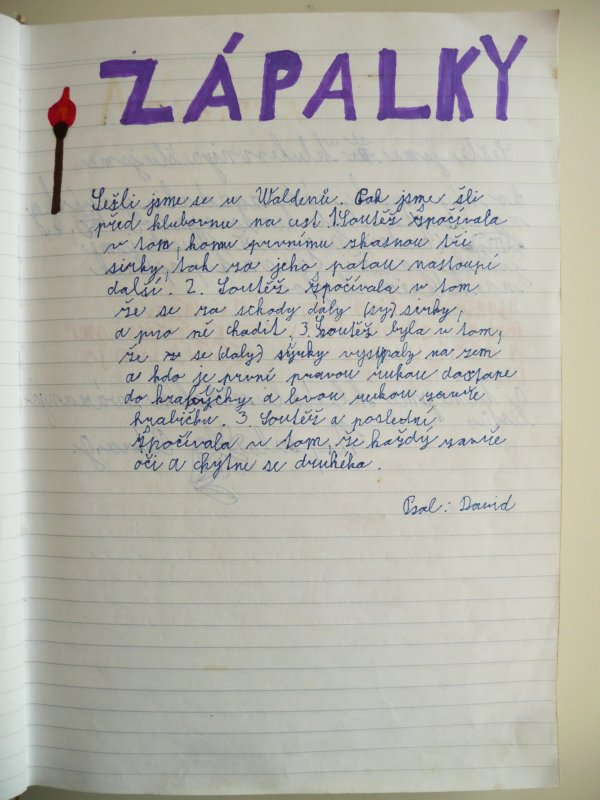 ZÁPALKY
Sešli jsme se u Waldenů. Pak jsme šli
před klubovnu na cest 1. Soutěž spočívala
v tom, komu prvnímu zhasnou tři
sirky, tak za jeho patou nastoupí
další. 2. Soutěž spočívala v tom
že se za schody daly (sy) sirky,
a pro ně chodit. 3 Soutěž byla v tom,
že se (daly) sirky vysypaly na zem
a kdo je první pravou rukou dostane
do krabyčky a levou rukou zavře
krabičku. 3 Soutěž a poslední
spočívala v tom, že každý zavře
oči a chytne se druhého.
Psal: David